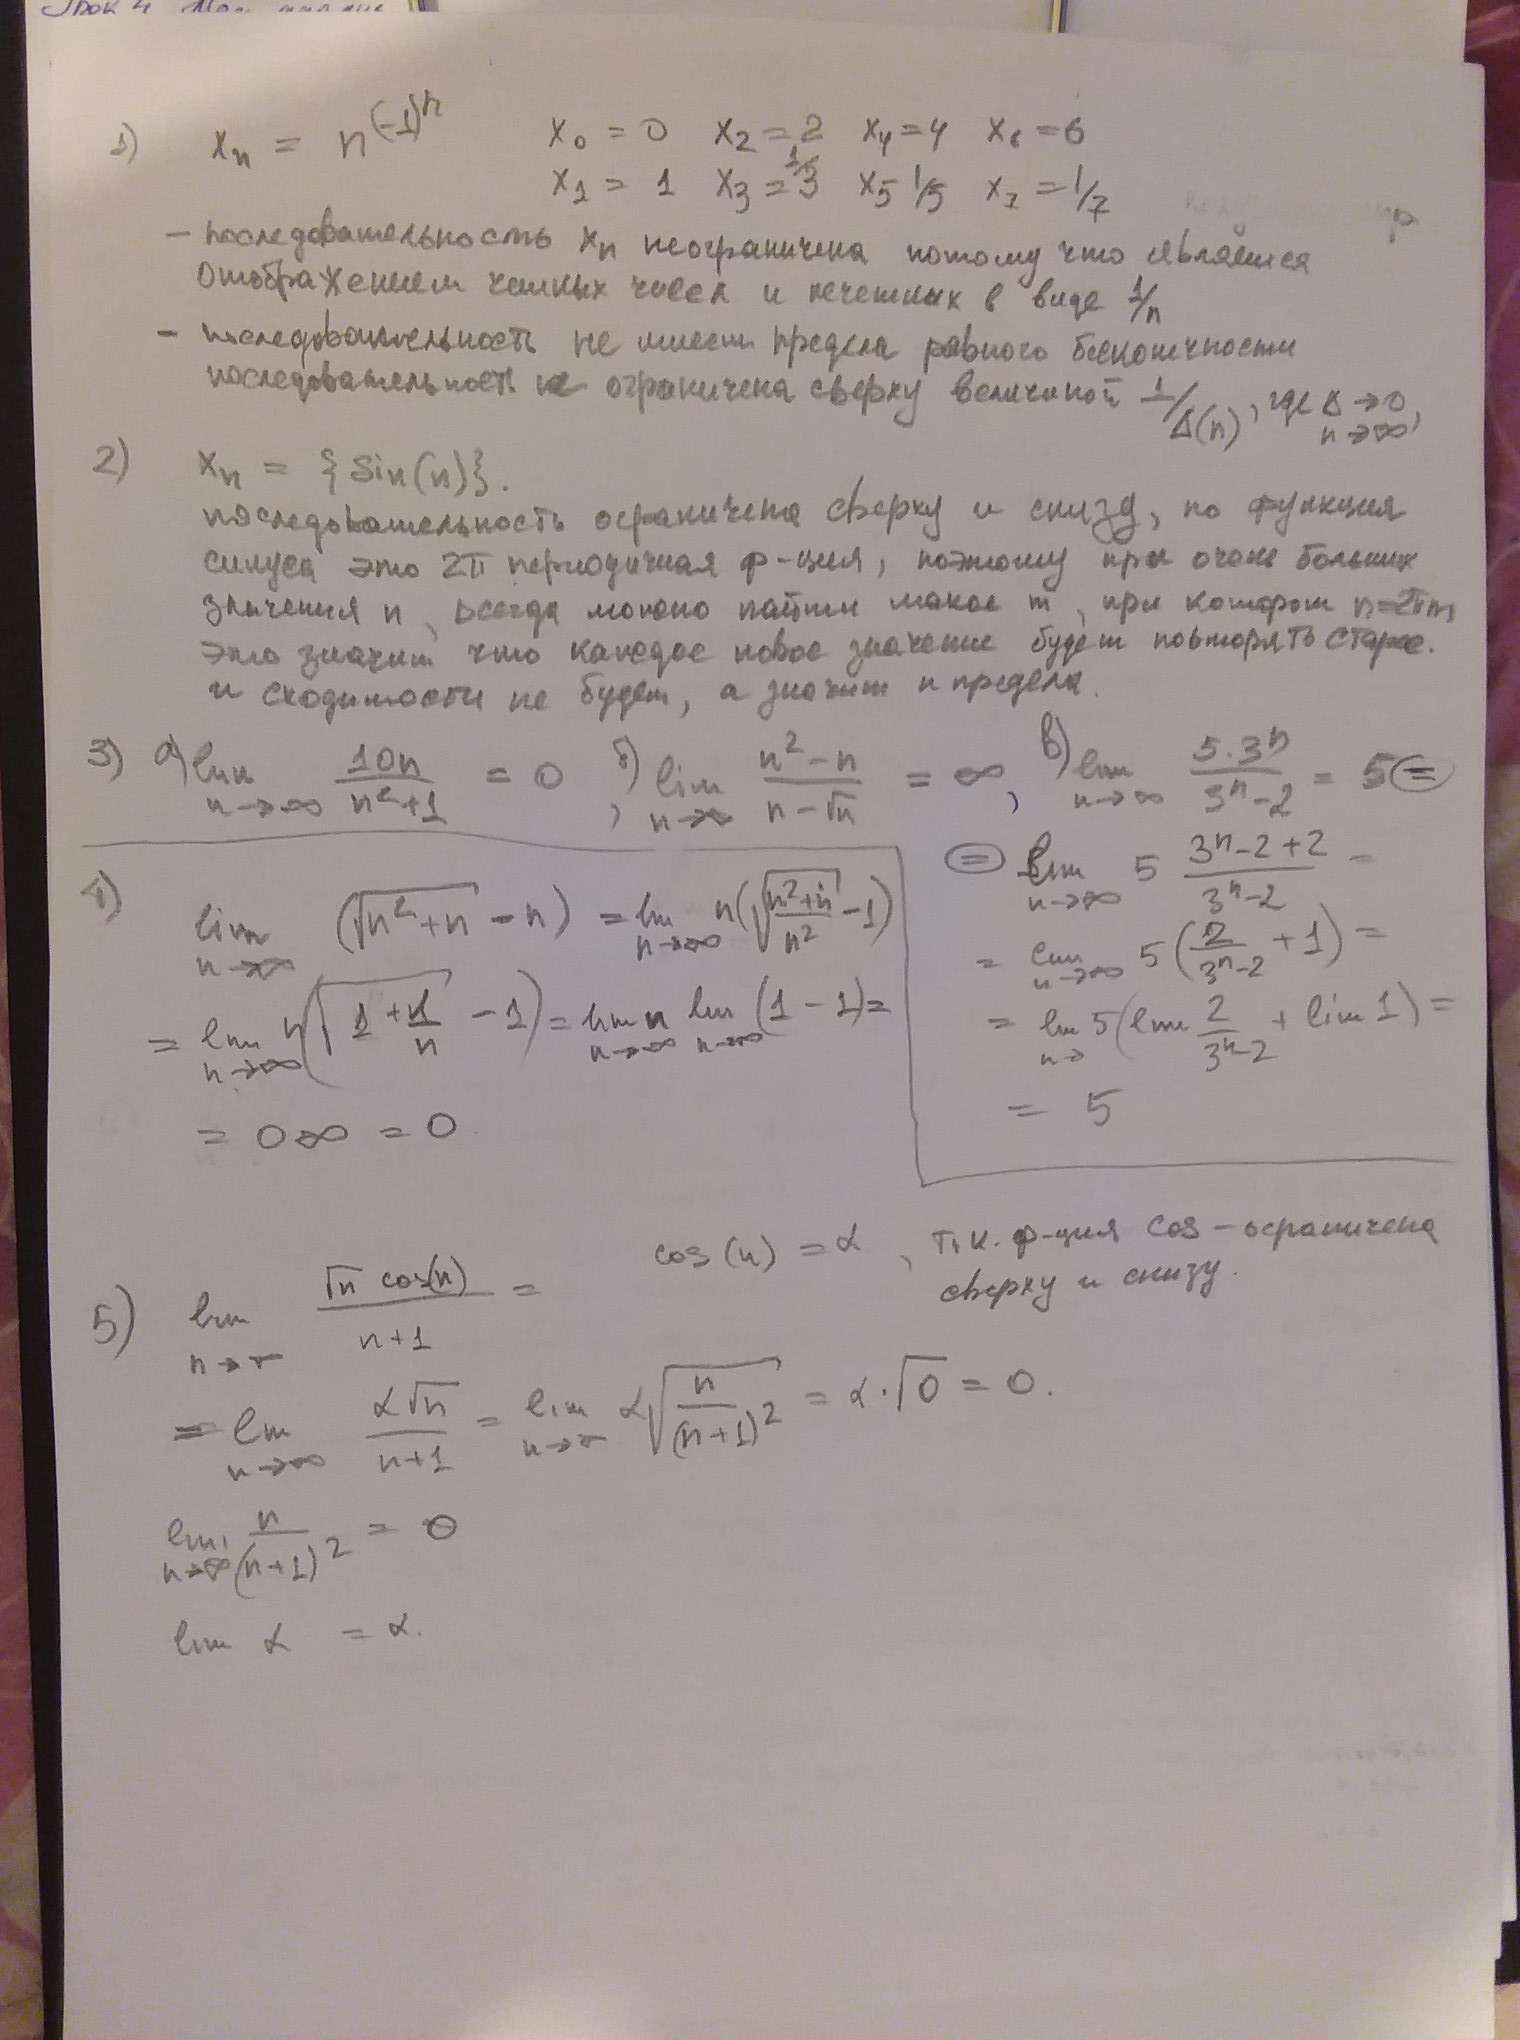 Урок 4
1) xₙ = n^(-1)^n x₀ = 0 x₂ = 2 x₄ = 4 x₆ = 6
x₁ = 1 x₃ = 1/3 x₅ 1/5 x₇ = 1/7
- последовательность xₙ неограничена потому что является
отображением четных чисел и нечетных в виде 1/n
- последовательность не имеет предела равного бесконечности
последовательность не ограничена сверху величиной 1/Δ(n), где Δ→0, n→∞,
2) xₙ = {sin(n)}.
последовательность ограничена сверху и снизу, но функция
синуса это 2π периодичная ф-ция, поэтому при очень больших
значения n, всегда можно найти такое m, при котором n=2πm
это значит что каждое новое значение будет повторять старое.
и сходимости не будет, а значит и предела.
3) а) lim n→∞ 10n/(n²+1) = 0, б) lim n→∞ (n²-n)/(n-√n) = ∞, в) lim n→∞ 5·3ⁿ/(3ⁿ-2) = 5 =
= lim n→∞ 5 (3ⁿ-2+2)/(3ⁿ-2) =
= lim n→∞ 5(2/(3ⁿ-2) + 1) =
= lim n→ 5(lim 2/(3ⁿ-2) + lim 1) =
= 5
4) lim n→∞ (√(n²+n) - n) = lim n→∞ n(√((n²+n)/n²) - 1)
= lim n→∞ n(√(1+1/n) - 1) = lim n→∞ n lim n→∞ (1-1) =
= 0∞ = 0
5) lim n→∞ √n cos(n)/(n+1) = cos(n) = α, т.к. ф-ция cos - ограничена
сверху и снизу.
= lim n→∞ α√n/(n+1) = lim n→∞ α√(n/(n+1)²) = α·√0 = 0.
lim n→∞ n/(n+1)² = 0
lim α = α.